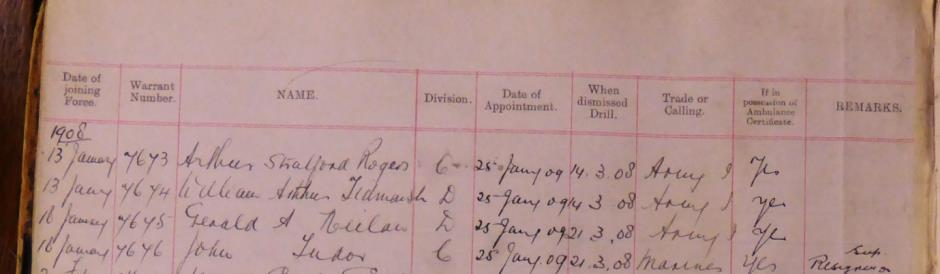 Date of joining Force. Warrant Number. NAME. Division. Date of Appointment. When dismissed Drill. Trade or Calling. If in possession of Ambulance Certificate. REMARKS.
1908
13 January 4643 Arthur Stratford Rogers C 25 Jany 09 14.3.08 Army Yes
13 Jany 4644 William Arthur Tidmarsh D 25 Jany 09 14 3 08 Army Yes
18 January 4645 Gerald A Neilan D 25 Jany 09 21.3.08 Army Yes
18 January 4646 John Tudor C 25 Jany.09 21.3.08 Marines Yes